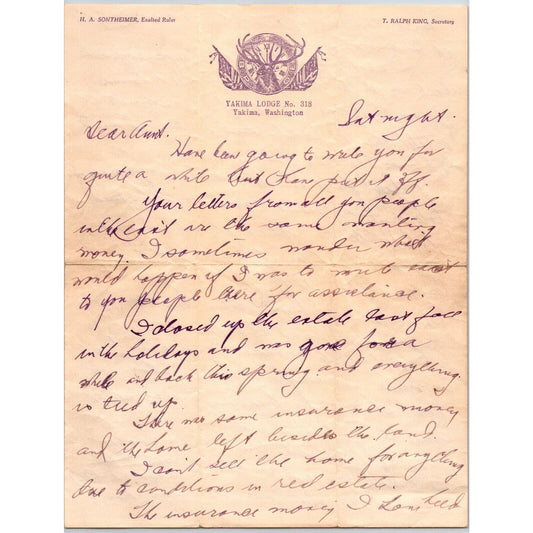 H. A. SONTHEIMER, Exalted Ruler
T. RALPH KING, Secretary
YAKIMA LODGE No. 318
Yakima, Washington
Sat night.
Dear Aunt.
Have been going to write you for
quite a while but have put it off.
Your letters from all you people
in the east are the same wanting
money. I sometimes wonder what
would happen if I was to write east
to you people there for assistance.
I closed up the estate last
in the holidays and was gone for a
while and back this spring and everything
is tied up.
There was some insurance money
and the home left besides the land.
I can't sell the home for anything
due to conditions in real estate.
The insurance money I have